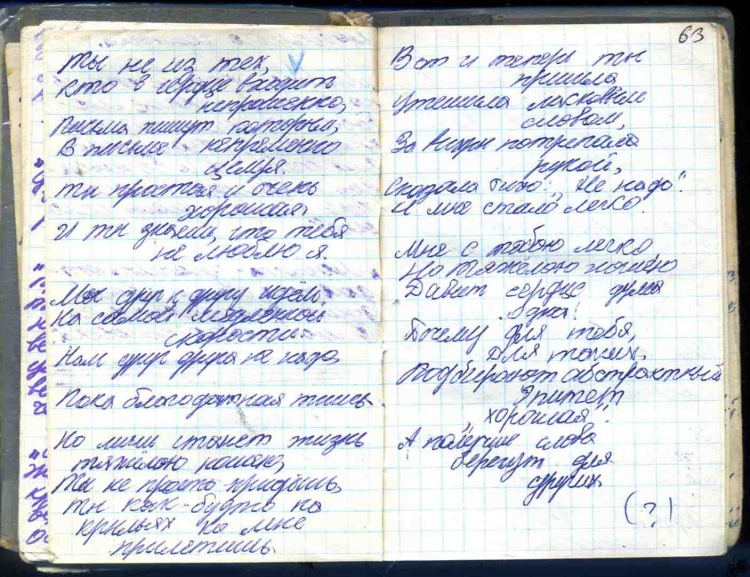 Ты не из тех,
кто в сердце входит
непрошенно,
Письма пишут которым,
В письма непременно
целуя.
Ты простая и очень
хорошая,
И ты знаешь, что тебя
не люблю я.
Мы друг к другу идём
На самой медленной
скорости.
Нам друг друга не надо,
Пока благодатная тишь.
Но лишь станет жизнь
тяжёлою ношею,
Ты не просто придёшь,
ты как-будто на
крыльях ко мне
прилетишь.
63
Вот и теперь ты
пришла
Утешила ласковым
словом,
За вихры потрепала
рукой,
Сказала тихо: „Не надо".
И мне стало легко.
Мне с тобою легко
Но тяжёлою ношею
Давит сердце дума
одна:
Почему для тебя,
Для таких,
Подбирают абстрактный
Эпитет
„хорошая".
А лучшие слова
берегут для
других.
(?)